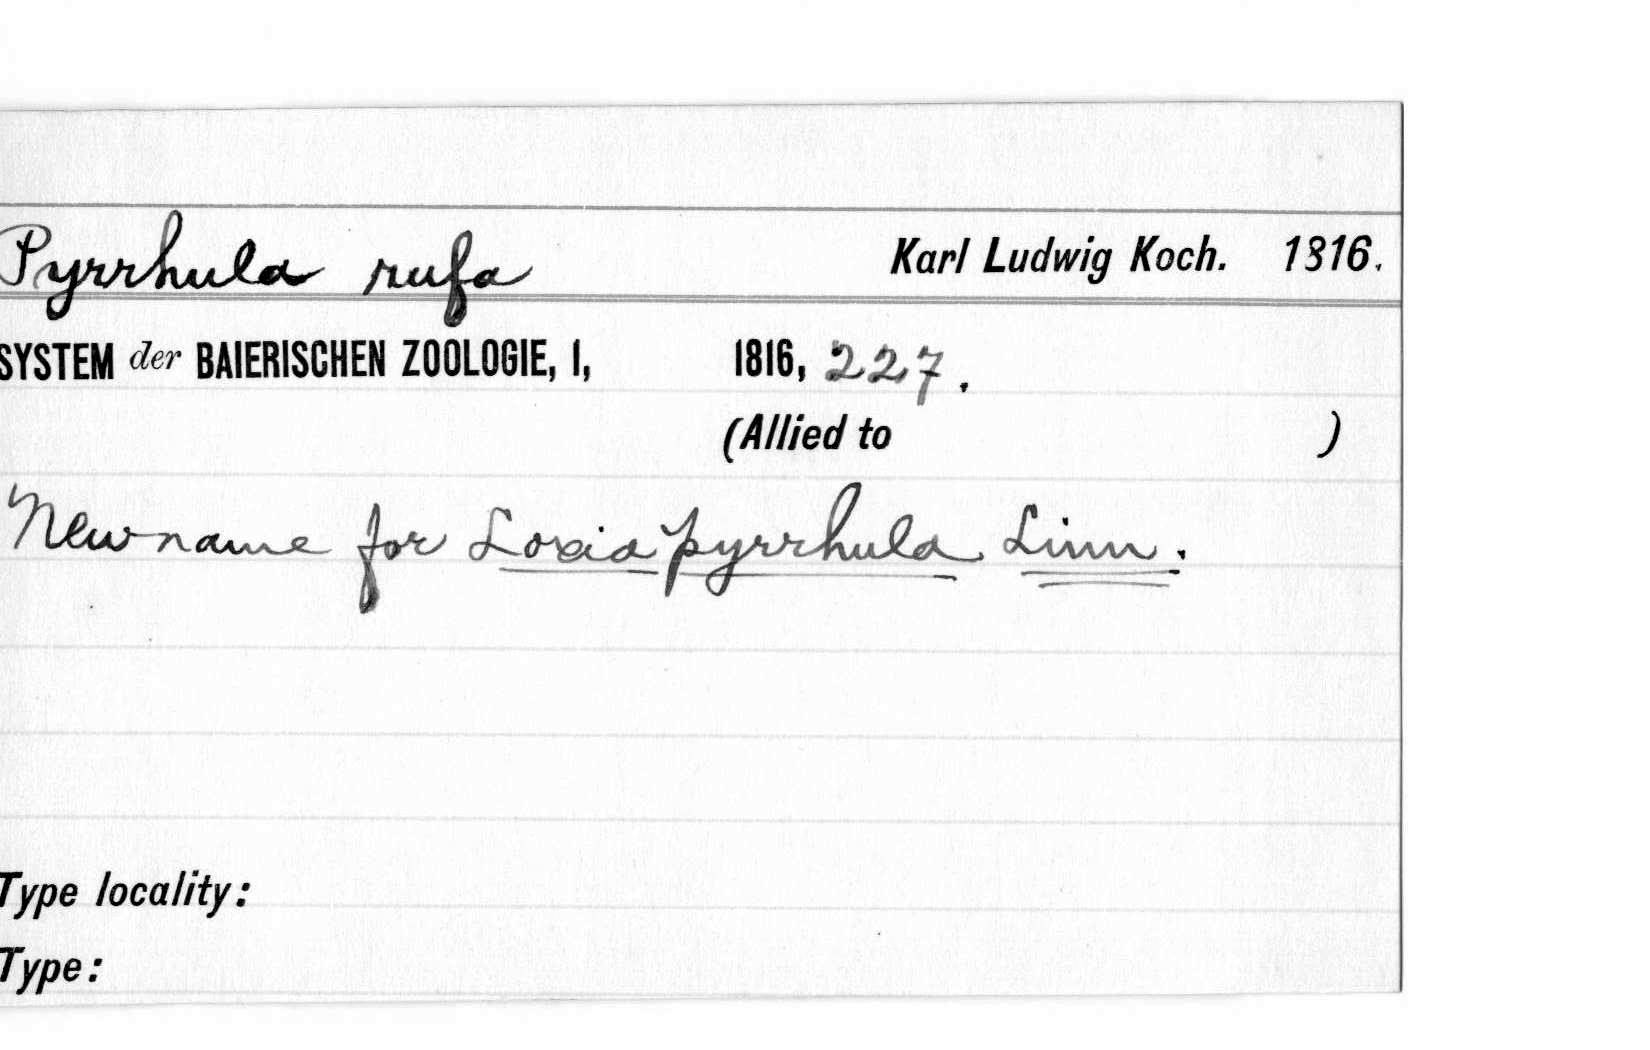 Pyrrhula rufa Karl Ludwig Koch. 1816.
SYSTEM der BAIERISCHEN ZOOLOGIE, I, 1816, 227.
(Allied to )
New name for Loxia pyrrhula Linn.
Type locality:
Type: